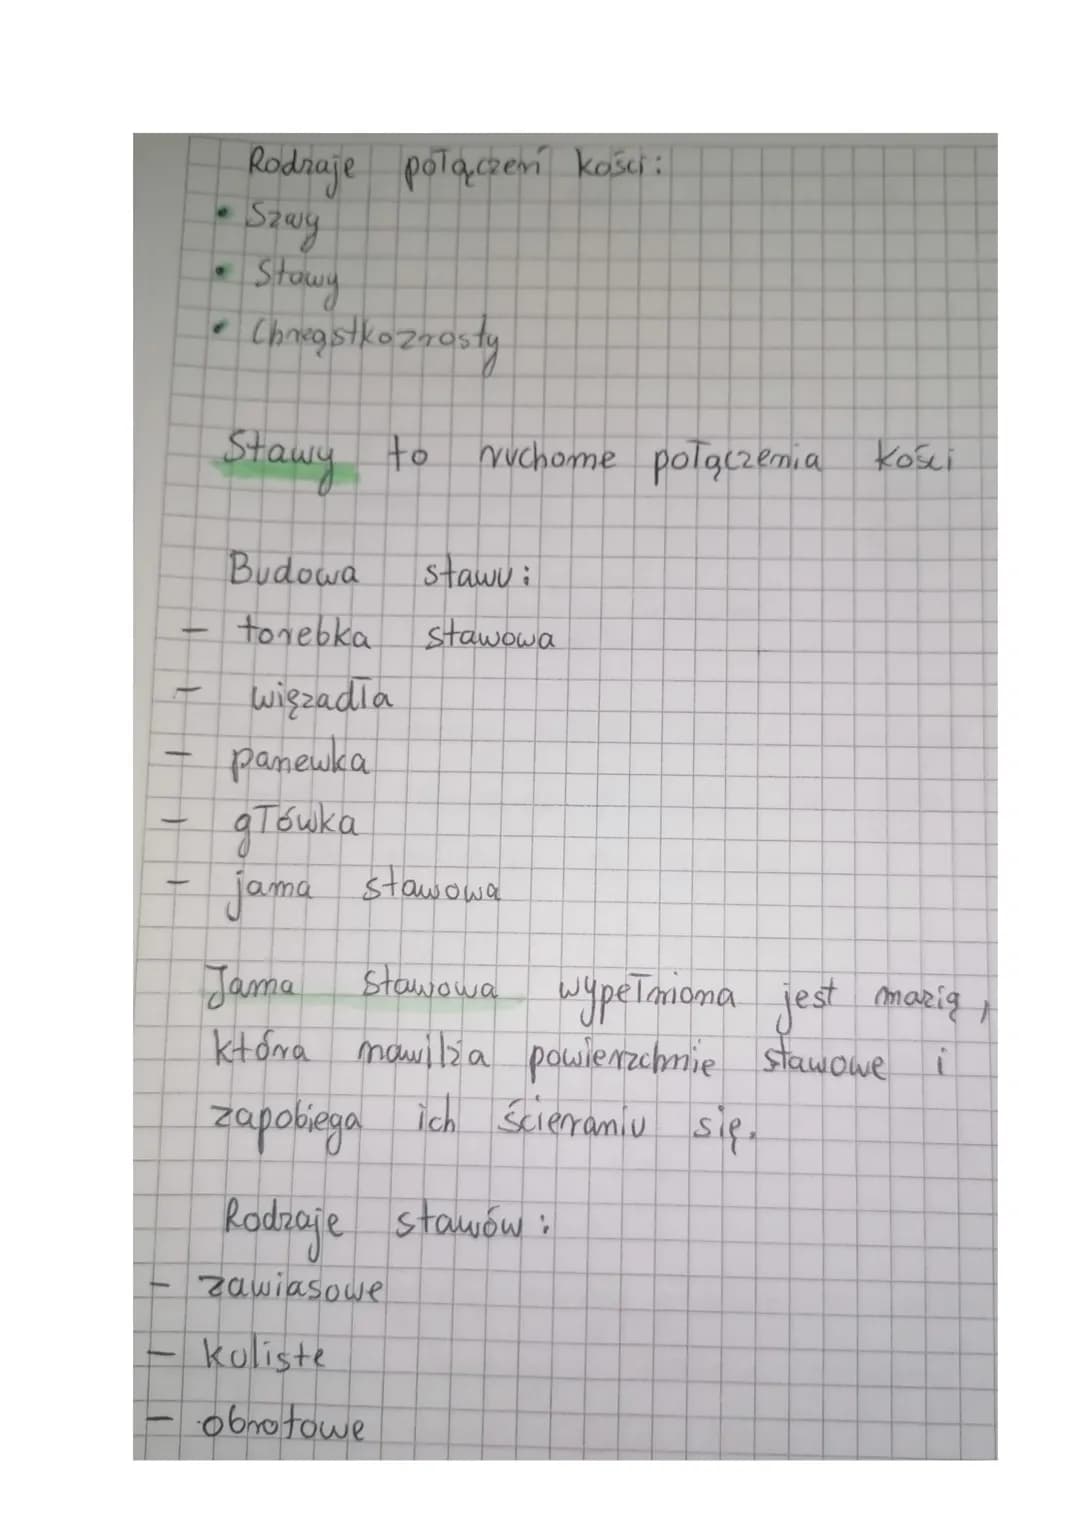 Rodzaje połączeń kości:
• Szwy
• Stawy
• Chrząstkozrosty
Stawy to ruchome połączenia kości
Budowa stawu:
- torebka stawowa
- więzadła
- panewka
- główka
- jama stawowa
Jama stawowa wypełniona jest mazią,
która nawilża powierzchnie stawowe i
zapobiega ich ścieraniu się.
Rodzaje stawów:
- zawiasowe
- kuliste
- obrotowe